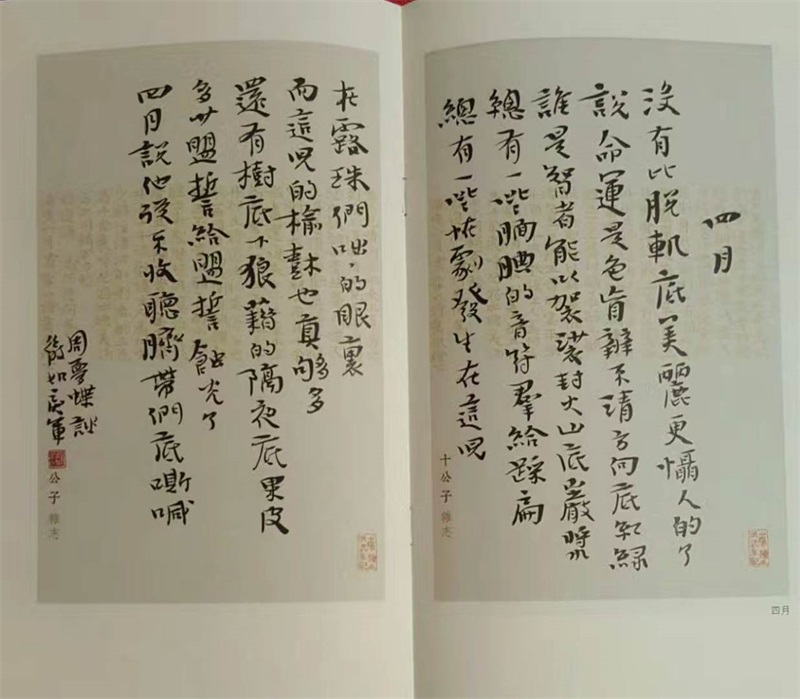 四月
沒有比脫軌底美麗更懾人的了
說命運是色盲辨不清方向底紅綠
誰是智者能以袈裟封火山底巖漿
總有一些靦腆的音符羣給踩扁
總有一些怪劇發生在這兒
十公子 雜志
四月
在露珠們咄咄的眼裏
而這兒的榆樹也真夠多
還有樹底下狼藉的隔夜底果皮
多少盟誓給盟誓蝕光了
四月說他從不收聽臍帶們底嘶喊
周夢蝶詩
公子 雜志